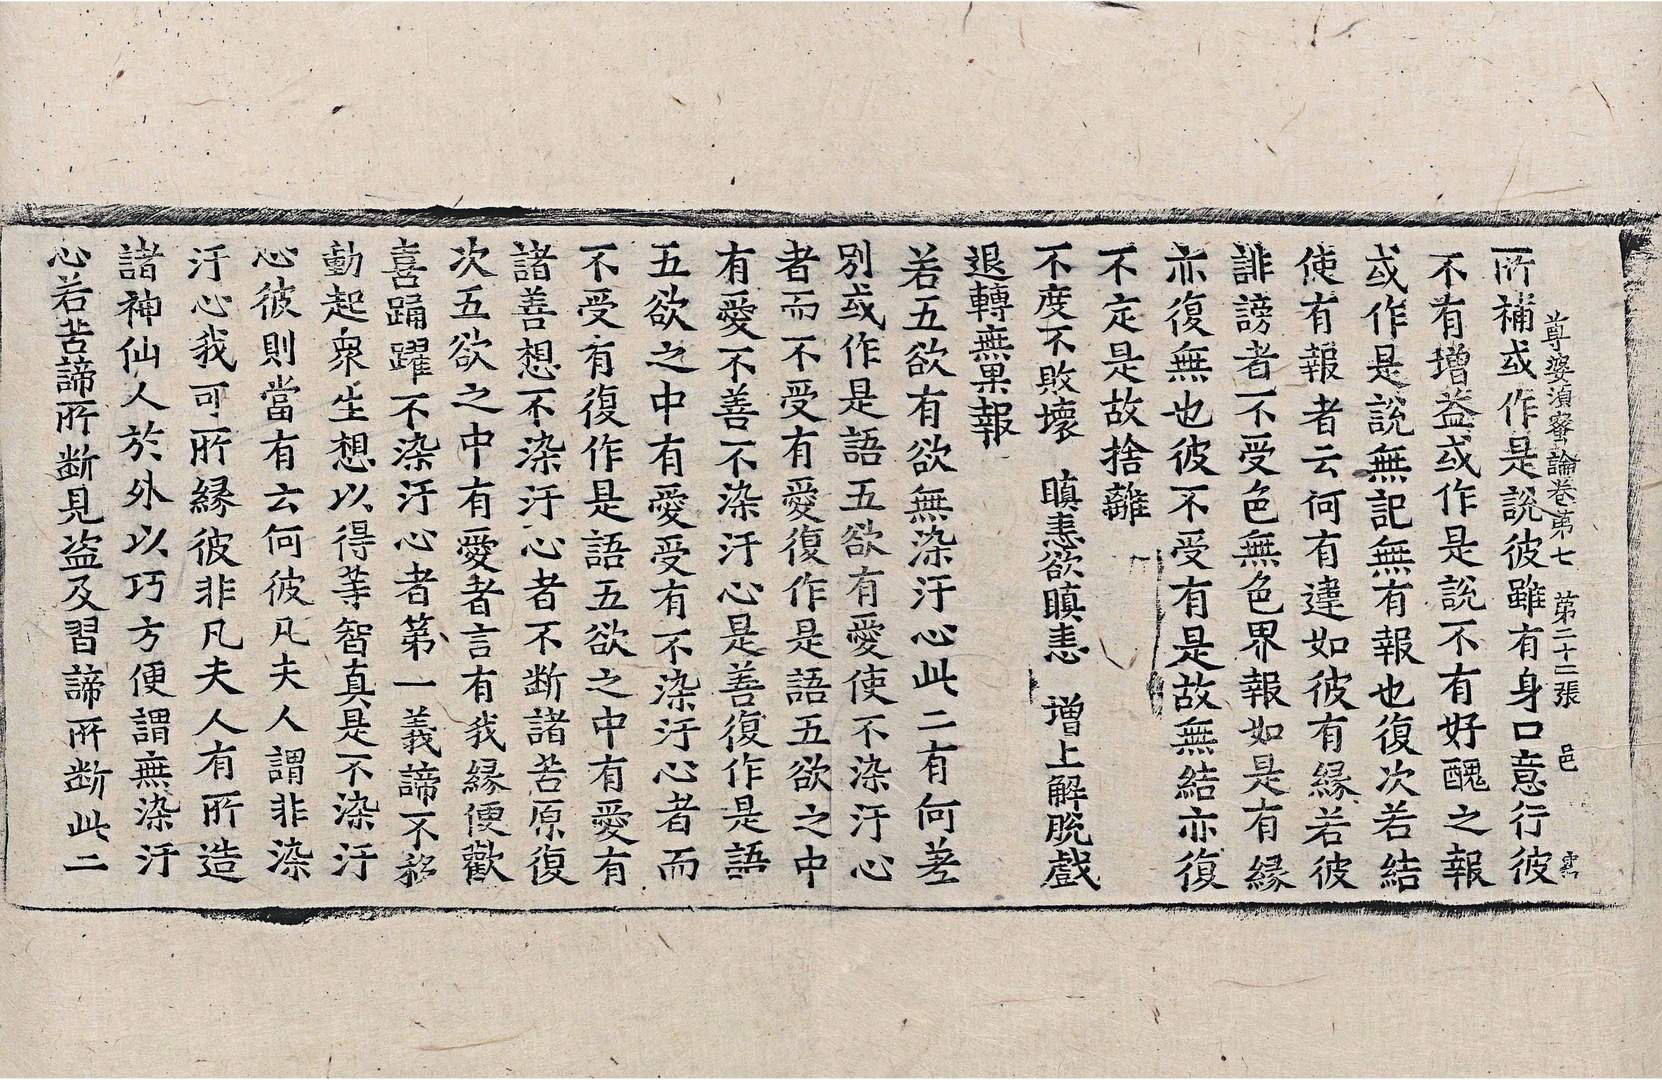 尊婆湏蜜論卷第七　第二十三張　邑
所補或作是說彼雖有身口意行彼
不有增益或作是說不有好醜之報
或作是說無記無有報也復次若結
使有報者云何有違如彼有緣若彼
誹謗者不受色無色界報如是有緣
亦復無也彼不受有是故無結亦復
不定是故捨離
不度不敗壞　瞋恚欲瞋恚　增上解脫戲
退轉無果報
若五欲有欲無染汙心此二有何差
別或作是語五欲有愛使不染汙心
者而不受有愛復作是語五欲之中
有愛不善不染汙心是善復作是語
五欲之中有愛受有不染汙心者而
不受有復作是語五欲之中有愛有
諸善想不染汙心者不斷諸苦原復
次五欲之中有愛者言有我緣便歡
喜踊躍不染汙心者第一義諦不移
動起衆生想以得等智真是不染汙
心彼則當有云何彼凡夫人謂非染
汙心我可所緣彼非凡夫人有所造
諸神仙人於外以巧方便謂無染汙
心若苦諦所斷見盜及習諦所斷此二